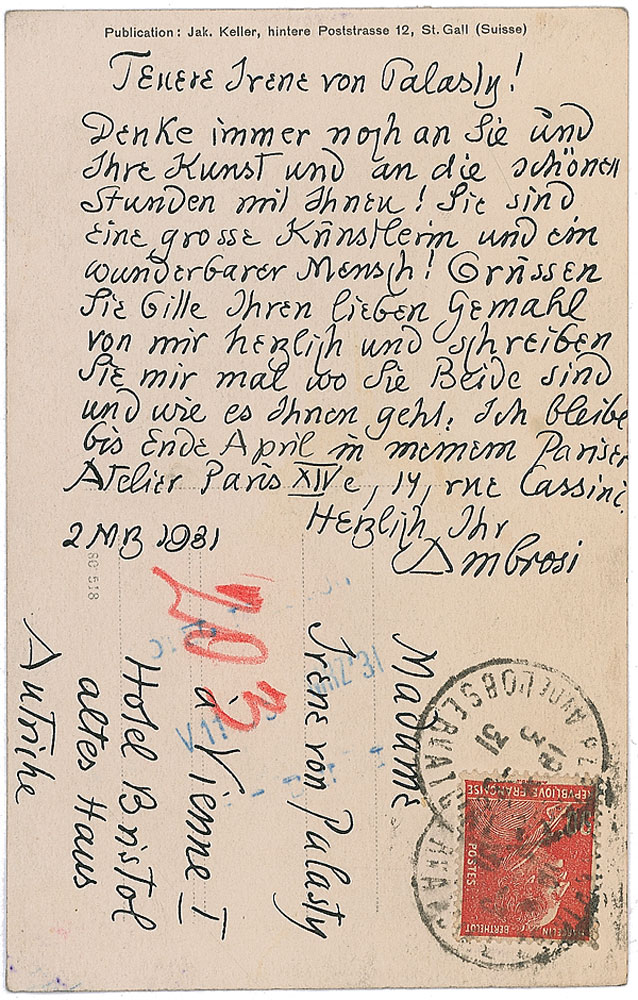 Publication: Jak. Keller, hintere Poststrasse 12, St. Gall (Suisse)
Teuere Irene von Palasty!
Denke immer noch an Sie und
Ihre Kunst und an die schönen
Stunden mit Ihnen! Sie sind
eine grosse Künstlerin und ein
wunderbarer Mensch! Grüssen
Sie bitte Ihren lieben Gemahl
von mir herzlich und schreiben
Sie mir mal wo Sie Beide sind
und wie es Ihnen geht. Ich bleibe
bis Ende April in meinem Pariser
Atelier Paris XIVe, 14, rue Cassini.
Herzlich Ihr
Ambrosi
2 MÄRZ 1931
Madame
Irene von Palasty
à Vienne I
Hotel Bristol
altes Haus
Autriche
203
MRZ '31
AV. DE L'OBSERVAT
13
31
REPUBLIQUE FRANÇAISE
POSTES
BERTHELOT